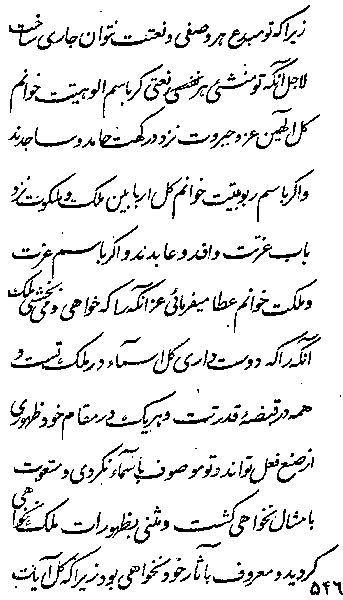 زیرا که تو مبدع هر وصفی و نعتت نتوان جاری ساخت
لاجل آنکه تو منشئ هر نعتی گر باسم الوهیتت خوانم
کل الهین عز و جبروت نزد درگهت حامد و ساجدند
و اگر باسم ربوبیتت خوانم کل اربابین ملک و ملکوت نزد
باب عزتت وافد و عابدند و اگر باسم عزت
و ملکت خوانم عطا میفرمائی عز آنکه را که خواهی و می بخشی ملک
آنکه را که دوست داری کل اسماء در ملک تست و
همه در قبضه قدرتت و هر یک در مقام خود ظهوری
از صنع فعل تواند و تو موصوف باسماء نگردی و منعوت
بامثال نخواهی گشت و مثنی بظهورات ملک نخواهی
گردید و معروف بآثار خود نخواهی بود زیرا که کل آیات
۵۴۶